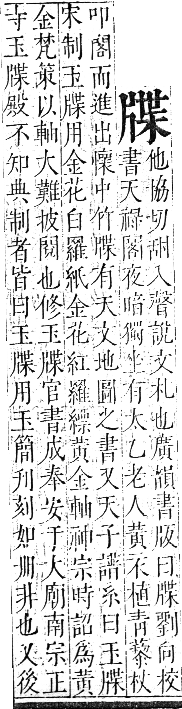 牒
他協切甜入聲說文札也廣韻書版曰牒劉向校
書天祿閣夜暗獨坐有太乙老人黃衣植青藜杖
叩閣而進出懷中竹牒有天文地圖之書又天子譜系曰玉牒
宋制玉牒用金花白羅紙金花紅羅縹黃金軸神宗時詔爲黃
金梵筴以軸大難披閱也修玉牒官書成奉安于大廟南宗正
寺玉牒殿不知典制者皆曰玉牒用玉簡刋刻如冊非也又後